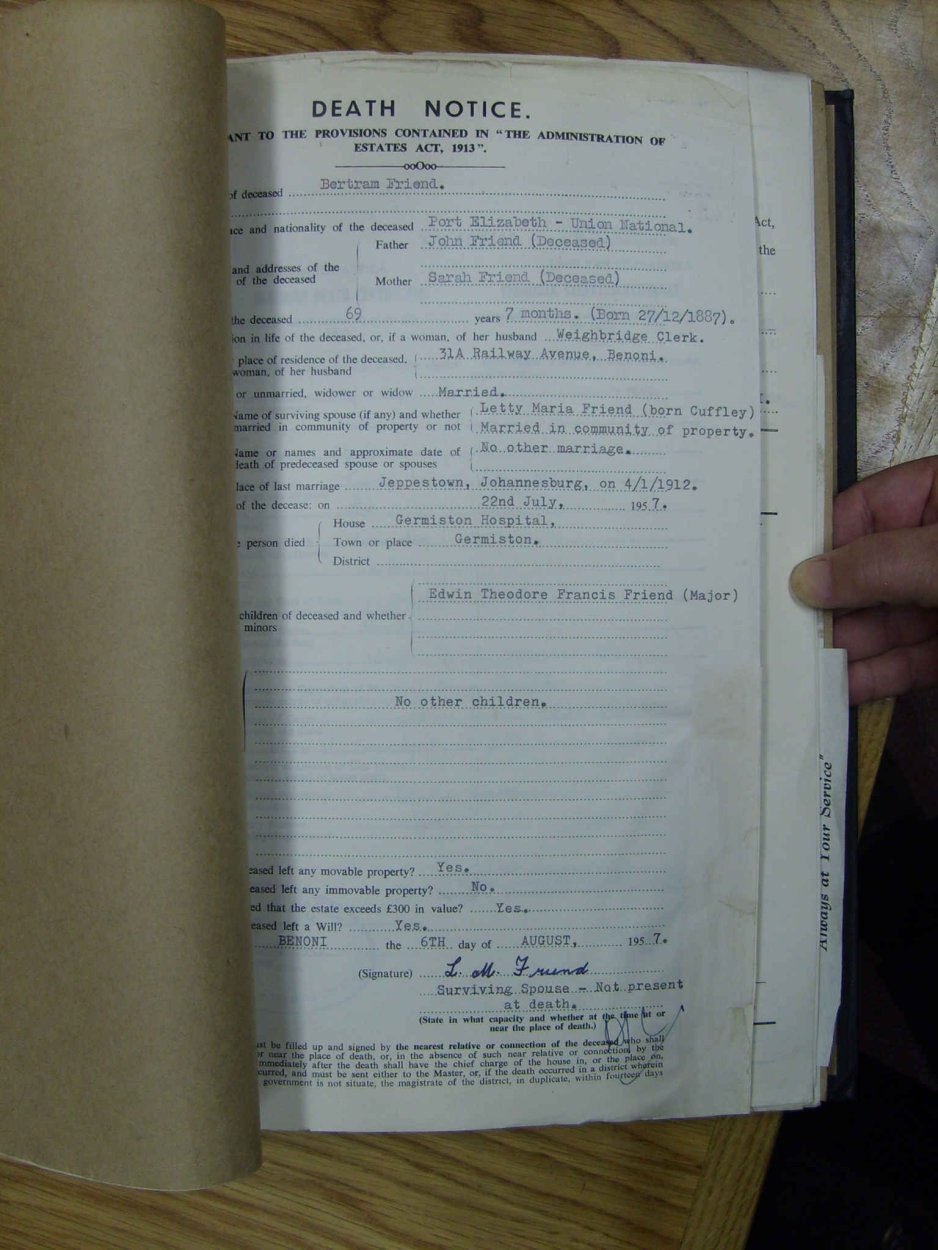 DEATH NOTICE.
ANT TO THE PROVISIONS CONTAINED IN "THE ADMINISTRATION OF
ESTATES ACT, 1913".
ooOoo
of deceased Bertram Friend.
ce and nationality of the deceased Port Elizabeth - Union National.
Father John Friend (Deceased)
and addresses of the
of the deceased
Mother Sarah Friend (Deceased)
the deceased 69 years 7 months. (Born 27/12/1887).
ion in life of the deceased, or, if a woman, of her husband Weighbridge Clerk.
place of residence of the deceased, 31A Railway Avenue, Benoni.
woman, of her husband
or unmarried, widower or widow Married.
Name of surviving spouse (if any) and whether Letty Maria Friend (born Cuffley)
married in community of property or not Married in community of property.
Name or names and approximate date of No other marriage.
death of predeceased spouse or spouses
lace of last marriage Jeppestown, Johannesburg, on 4/1/1912.
of the decease: on 22nd July, 1957.
House Germiston Hospital,
e person died Town or place Germiston.
District
Edwin Theodore Francis Friend (Major)
children of deceased and whether
minors
No other children.
eased left any movable property? Yes.
eased left any immovable property? No.
ed that the estate exceeds £300 in value? Yes.
eased left a Will? Yes.
BENONI the 6TH day of AUGUST, 1957.
(Signature) L. M. Friend
Surviving Spouse - Not present
at death.
(State in what capacity and whether at the time at or
near the place of death.)
ust be filled up and signed by the nearest relative or connection of the deceased who shall
or near the place of death, or, in the absence of such near relative or connection, by the
mmediately after the death shall have the chief charge of the house in, or the place on,
curred, and must be sent either to the Master, or, if the death occurred in a district wherein
government is not situate, the magistrate of the district, in duplicate, within fourteen days
Act,
the
"Always at Your Service"